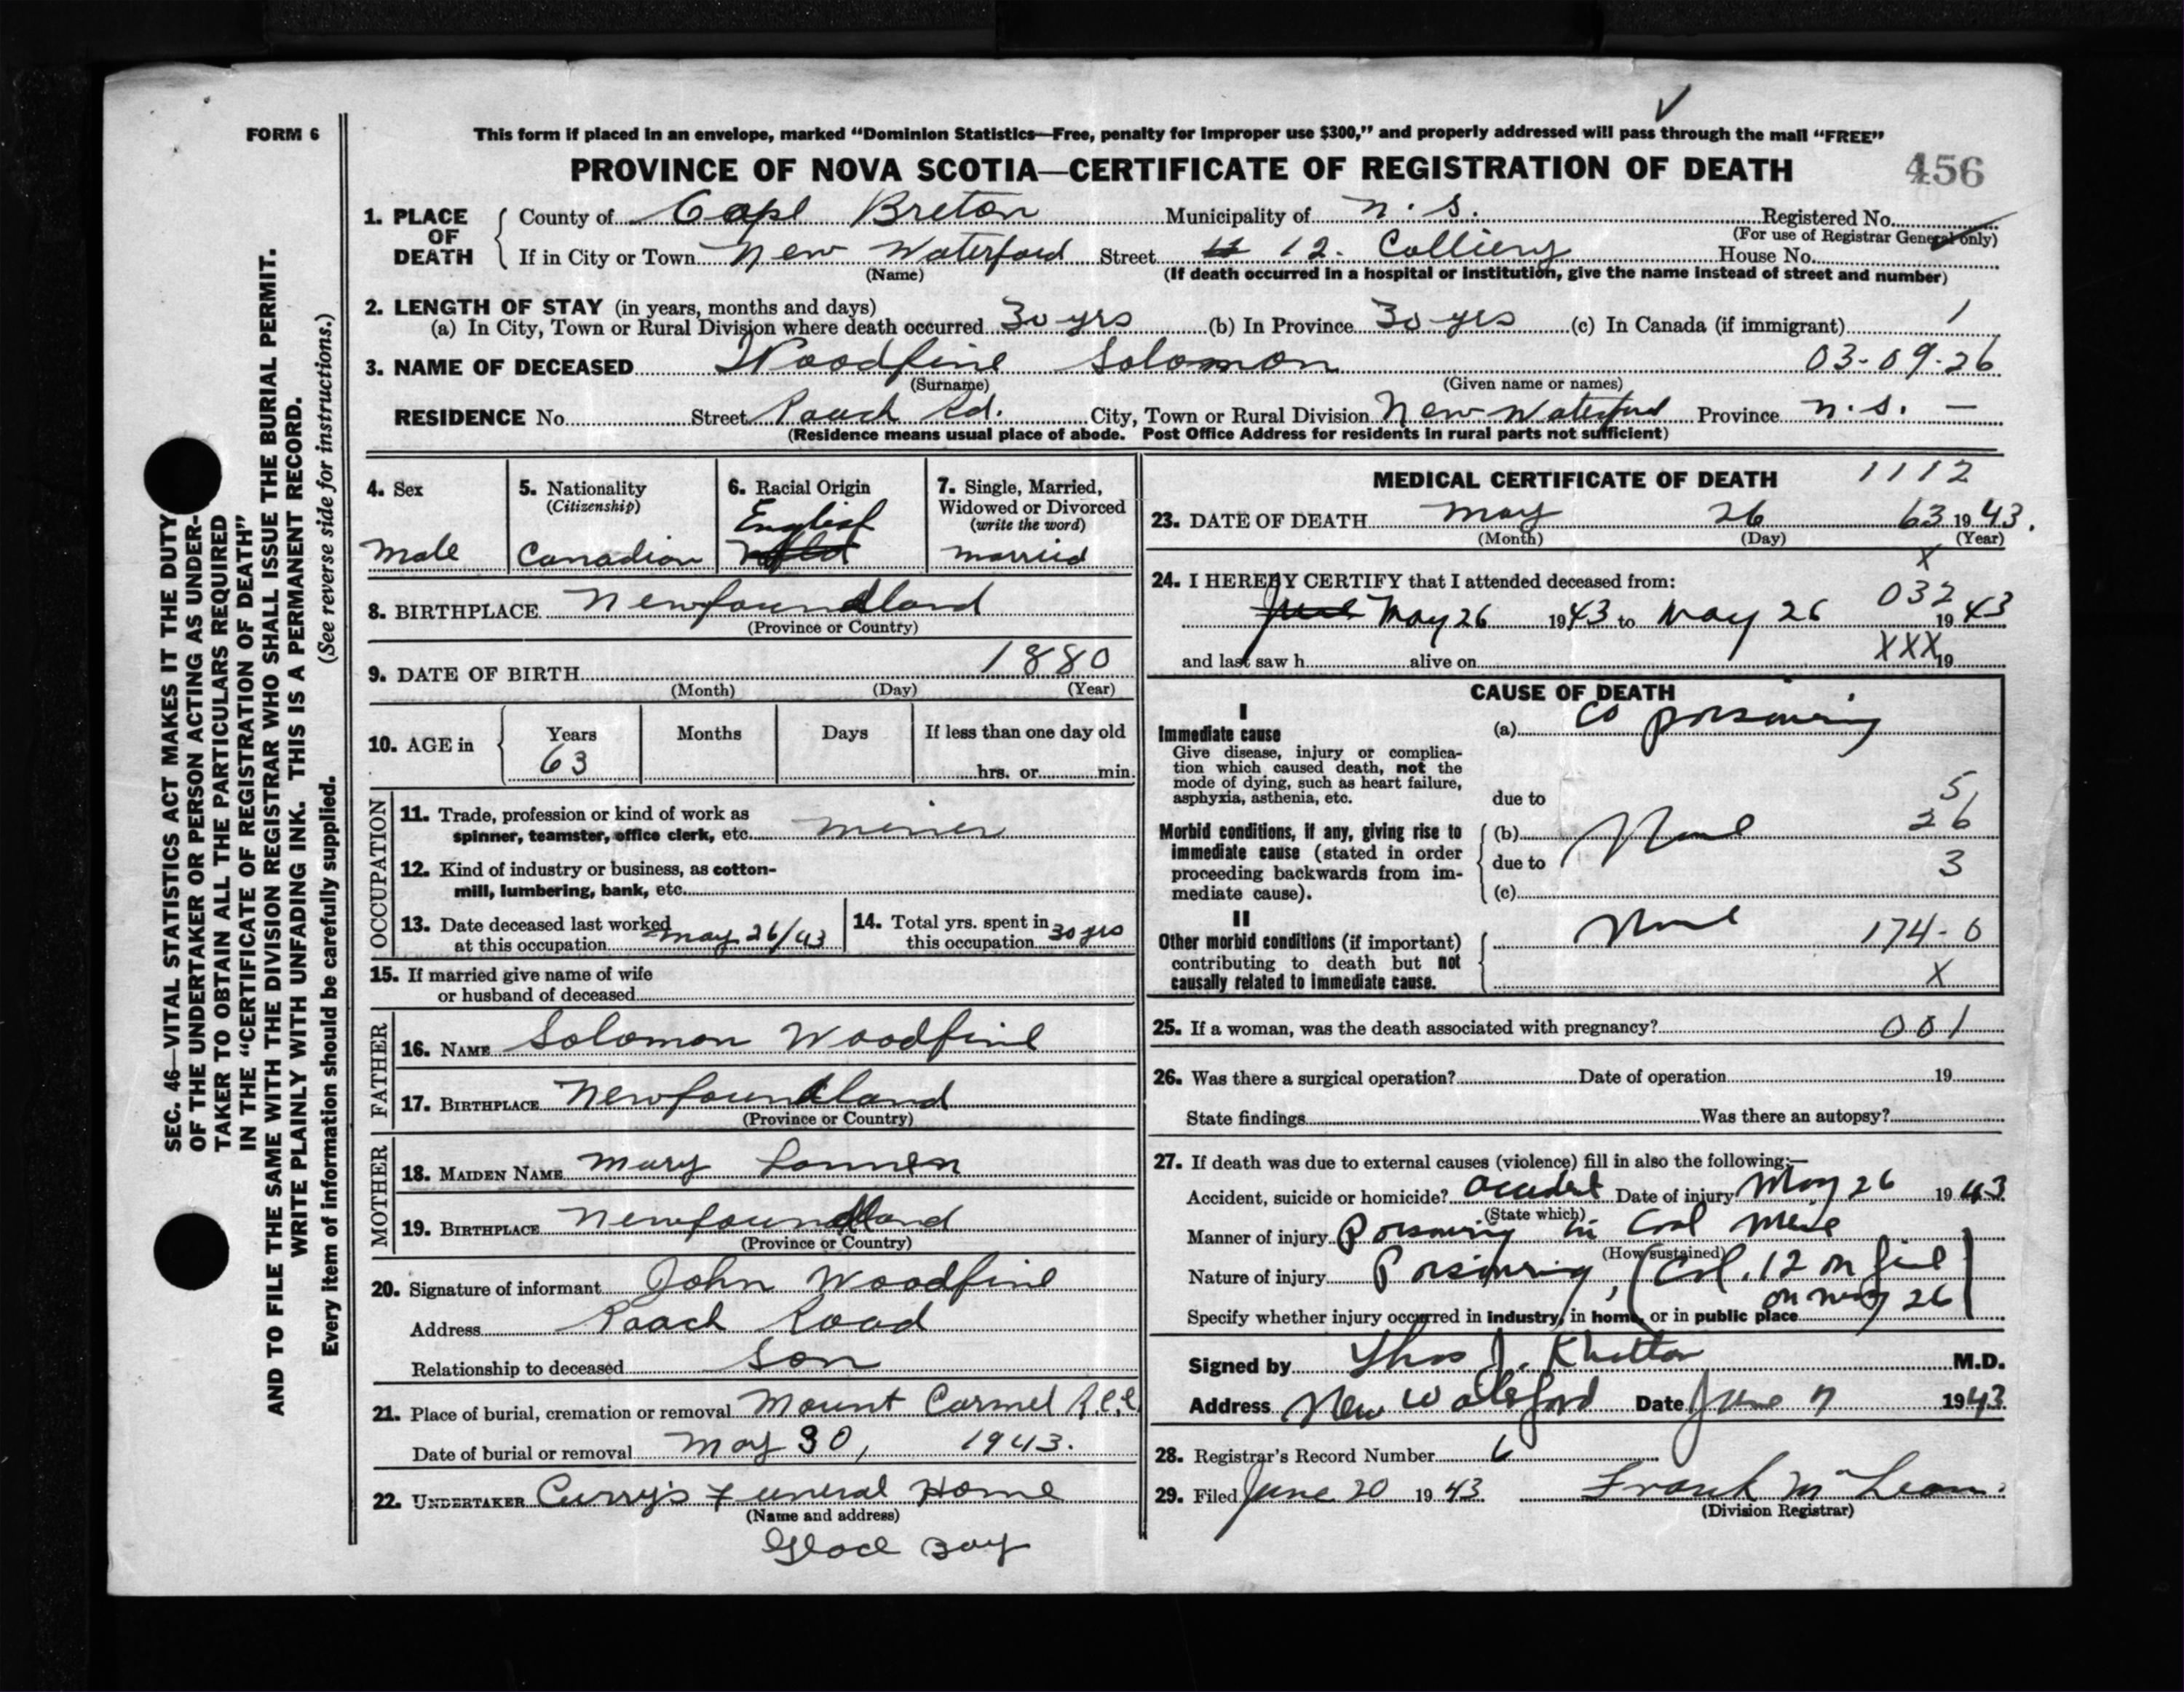 FORM 6
This form if placed in an envelope, marked “Dominion Statistics—Free, penalty for improper use $300,” and properly addressed will pass through the mail “FREE”
PROVINCE OF NOVA SCOTIA—CERTIFICATE OF REGISTRATION OF DEATH
456
1. PLACE OF DEATH
County of Cape Breton Municipality of N. S. Registered No.
(For use of Registrar General only)
If in City or Town New Waterford Street 12. Colliery House No.
(Name) (If death occurred in a hospital or institution, give the name instead of street and number)
2. LENGTH OF STAY (in years, months and days)
(a) In City, Town or Rural Division where death occurred 30 yrs (b) In Province 30 yrs (c) In Canada (if immigrant) 1
3. NAME OF DECEASED Woodfine Solomon 03-09-26
(Surname) (Given name or names)
RESIDENCE No. Street Roach Rd. City, Town or Rural Division New Waterford Province N.S. —
(Residence means usual place of abode. Post Office Address for residents in rural parts not sufficient)
4. Sex
Male
5. Nationality
(Citizenship)
Canadian
6. Racial Origin
English
7. Single, Married,
Widowed or Divorced
(write the word)
married
8. BIRTHPLACE Newfoundland
(Province or Country)
9. DATE OF BIRTH 1880
(Month) (Day) (Year)
10. AGE in Years Months Days If less than one day old
63 hrs. or min.
OCCUPATION
11. Trade, profession or kind of work as
spinner, teamster, office clerk, etc. miner
12. Kind of industry or business, as cotton-
mill, lumbering, bank, etc.
13. Date deceased last worked
at this occupation May 26/43
14. Total yrs. spent in
this occupation 30 yrs
15. If married give name of wife
or husband of deceased
FATHER
16. NAME Solomon Woodfine
17. BIRTHPLACE Newfoundland
(Province or Country)
MOTHER
18. MAIDEN NAME Mary
19. BIRTHPLACE Newfoundland
(Province or Country)
20. Signature of informant John Woodfine
Address Roach Road
Relationship to deceased Son
21. Place of burial, cremation or removal Mount Carmel R.C.C.
Date of burial or removal May 30, 1943.
22. UNDERTAKER Curry's Funeral Home
(Name and address)
Glace Bay
MEDICAL CERTIFICATE OF DEATH 1112
23. DATE OF DEATH May 26 63 1943.
(Month) (Day) (Year)
X
24. I HEREBY CERTIFY that I attended deceased from:
032
June May 26 1943 to May 26 1943
XXX
and last saw h alive on 19
CAUSE OF DEATH
I
Immediate cause
Give disease, injury or complica-
tion which caused death, not the
mode of dying, such as heart failure,
asphyxia, asthenia, etc.
(a) CO poisoning
due to 5
Morbid conditions, if any, giving rise to
immediate cause (stated in order
proceeding backwards from im-
mediate cause).
(b) None 26
due to 3
(c)
II
Other morbid conditions (if important)
contributing to death but not
causally related to immediate cause.
None 174-0
X
25. If a woman, was the death associated with pregnancy? 001
26. Was there a surgical operation? Date of operation 19
State findings Was there an autopsy?
27. If death was due to external causes (violence) fill in also the following:—
Accident, suicide or homicide? accident Date of injury May 26 1943
(State which)
Manner of injury Poisoning in Coal Mine
(How sustained)
Nature of injury Poisoning, (Col. 12 on fire
on May 26)
Specify whether injury occurred in industry, in home, or in public place
Signed by Thos J. M.D.
Address New Waterford Date June 7 1943
28. Registrar's Record Number 6
29. Filed June 20 1943 Frank McLean
(Division Registrar)
SEC. 46—VITAL STATISTICS ACT MAKES IT THE DUTY
OF THE UNDERTAKER OR PERSON ACTING AS UNDER-
TAKER TO OBTAIN ALL THE PARTICULARS REQUIRED
IN THE “CERTIFICATE OF REGISTRATION OF DEATH”
AND TO FILE THE SAME WITH THE DIVISION REGISTRAR WHO SHALL ISSUE THE BURIAL PERMIT.
WRITE PLAINLY WITH UNFADING INK. THIS IS A PERMANENT RECORD.
Every item of information should be carefully supplied. (See reverse side for instructions.)